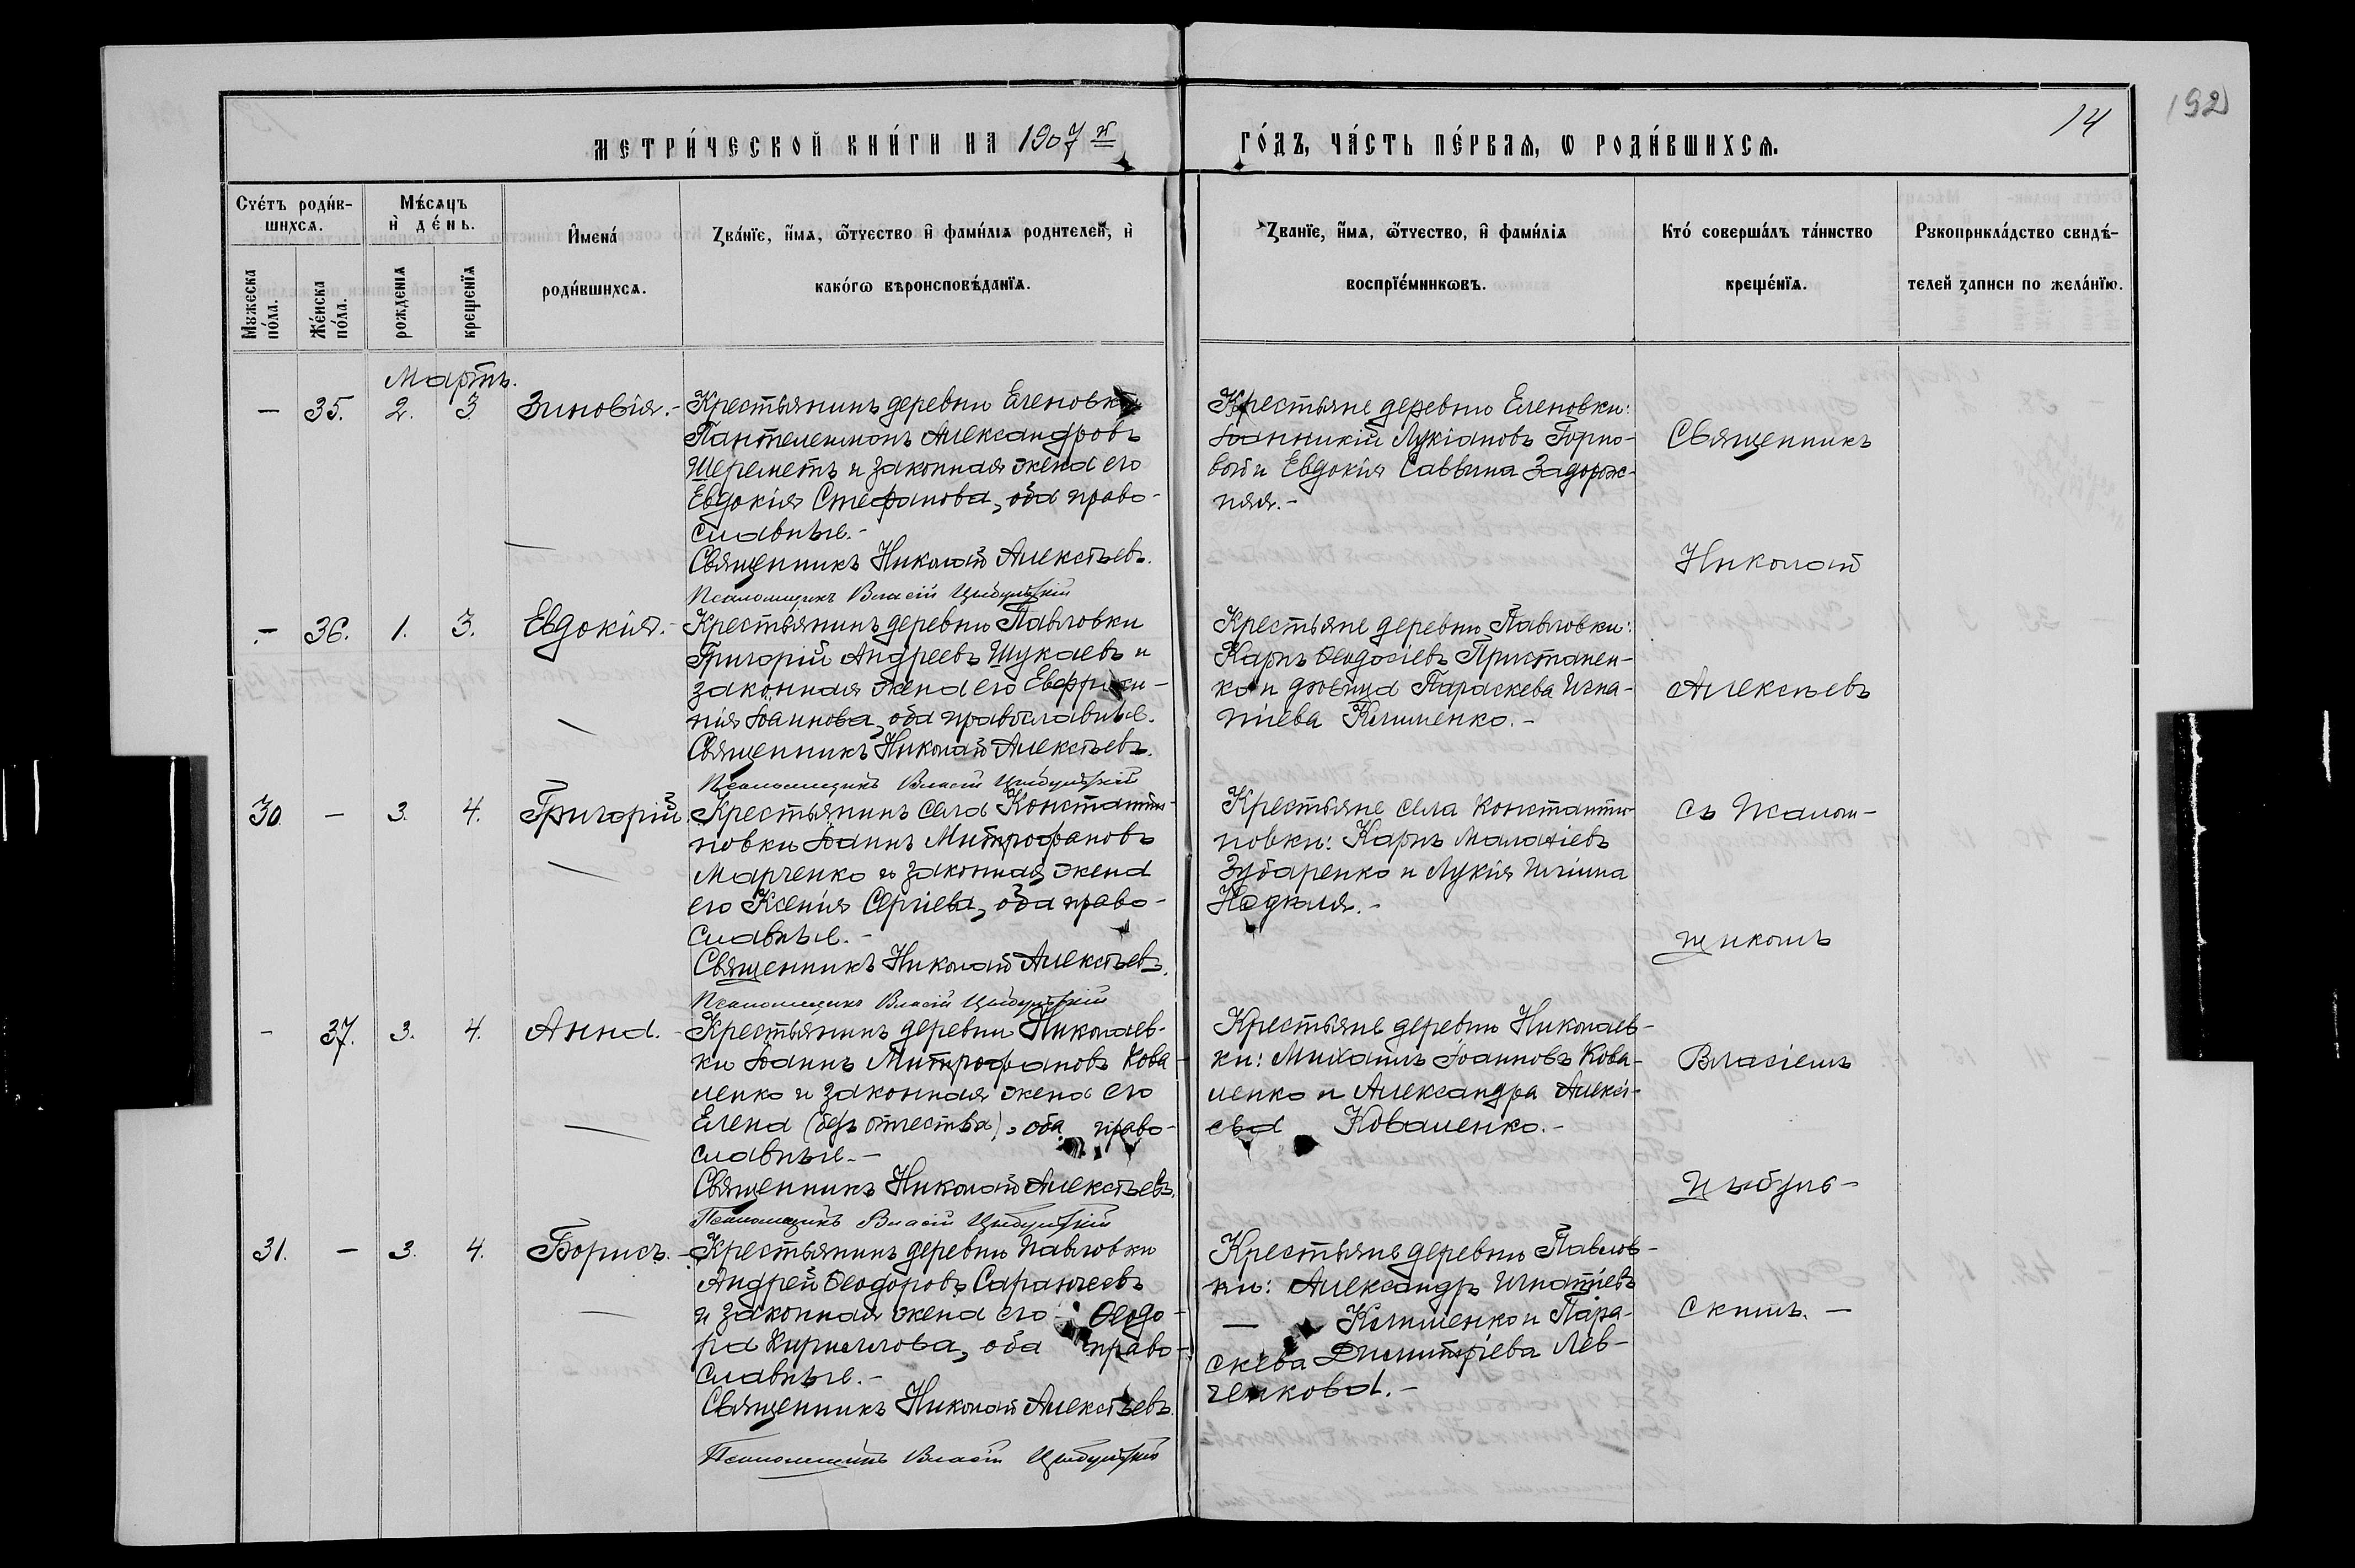 192
14
МЕТРИ́ЧЕСКОЙ КНИ́ГИ НА 1907 й
ГО́ДЪ, ЧА́СТЬ ПЕ́РВАѦ, Ѡ РОДИ́ВШИХСѦ.
Сче́тъ роди́вшихсѧ.
Мꙋжеска по́ла.
Же́нска по́ла.
Мѣ́сѧцъ и҆ де́нь.
рожденїѧ
крещенїѧ
И҆мена́ роди́вшихсѧ.
Ꙁва́нїе, и҆́мѧ, ѻ҆́тчество и҆ фами́лїѧ родителей, и҆
како́гѡ вѣроисповѣ́данїѧ.
Ꙁванїе, и҆́мѧ, ѻ҆́тчество, и҆ фами́лїѧ
воспрїе́мникѡвъ.
Кто́ соверша́лъ та́инство
креще́нїѧ.
Рꙋкоприкла́дство свидѣ́-
телей ꙁаписи по жела́нїю.
Мартъ.
— 35. 2. 3. Зиновія. -
Крестьянинъ деревни Еленовки
Пантелеимонъ Александровъ
Шереметъ и законная жена его
Евдокія Стефанова, оба право-
славные. -
Священникъ Николай Алексѣевъ.
Псаломщикъ Власій Цыбульскій
Крестьяне деревни Еленовки:
Іоанникій Лукіановъ Горно-
вой и Евдокія Саввина Задорж-
няя. -
— 36. 1. 3. Евдокія. -
Крестьянинъ деревни Павловки
Григорій Андреевъ Шукаевъ и
законная жена его Евфроси-
нія Іоаннова, оба православные.
Священникъ Николай Алексѣевъ.
Псаломщикъ Власій Цыбульскій
Крестьяне деревни Павловки:
Карпъ Ѳеодосіевъ Пристанен-
ко и дѣвица Параскева Игна-
тіева Клименко. -
30. — 3. 4. Григорій.
Крестьянинъ села Константи-
новки Іоаннъ Митрофановъ
Марченко и законная жена
его Ксенія Сергіева, оба право-
славные. -
Священникъ Николай Алексѣевъ.
Псаломщикъ Власій Цыбульскій
Крестьяне села Константи-
новки: Карпъ Малахіевъ
Зубаренко и Лукія Иліина
- 37. 3. 4. Анна. -
Крестьянинъ деревни Николаев-
ки Іоаннъ Митрофановъ Кова-
ленко и законная жена его
Елена (безъ отчества), оба право-
славные. -
Священникъ Николай Алексѣевъ.
Псаломщикъ Власій Цыбульскій
Крестьяне деревни Николаев-
ки: Михаилъ Іоанновъ Кова-
ленко и Александра Алексѣ-
ева Коваленко. -
31. — 3. 4. Борисъ. -
Крестьянинъ деревни Павловки
Андрей Ѳеодоровъ Саранчевъ
и законная жена его Ѳеодо-
ра Кириллова, оба право-
славные. -
Священникъ Николай Алексѣевъ.
Псаломщикъ Власій Цыбульскій
Крестьяне деревни Павлов-
ки: Александръ Игнатіевъ
— Клименко и Пара-
скева Димитріева Лев-
ченкова. -
Священникъ
Николай
Алексѣевъ
съ Псалом-
щикомъ
Власіемъ
Цыбуль-
скимъ. —